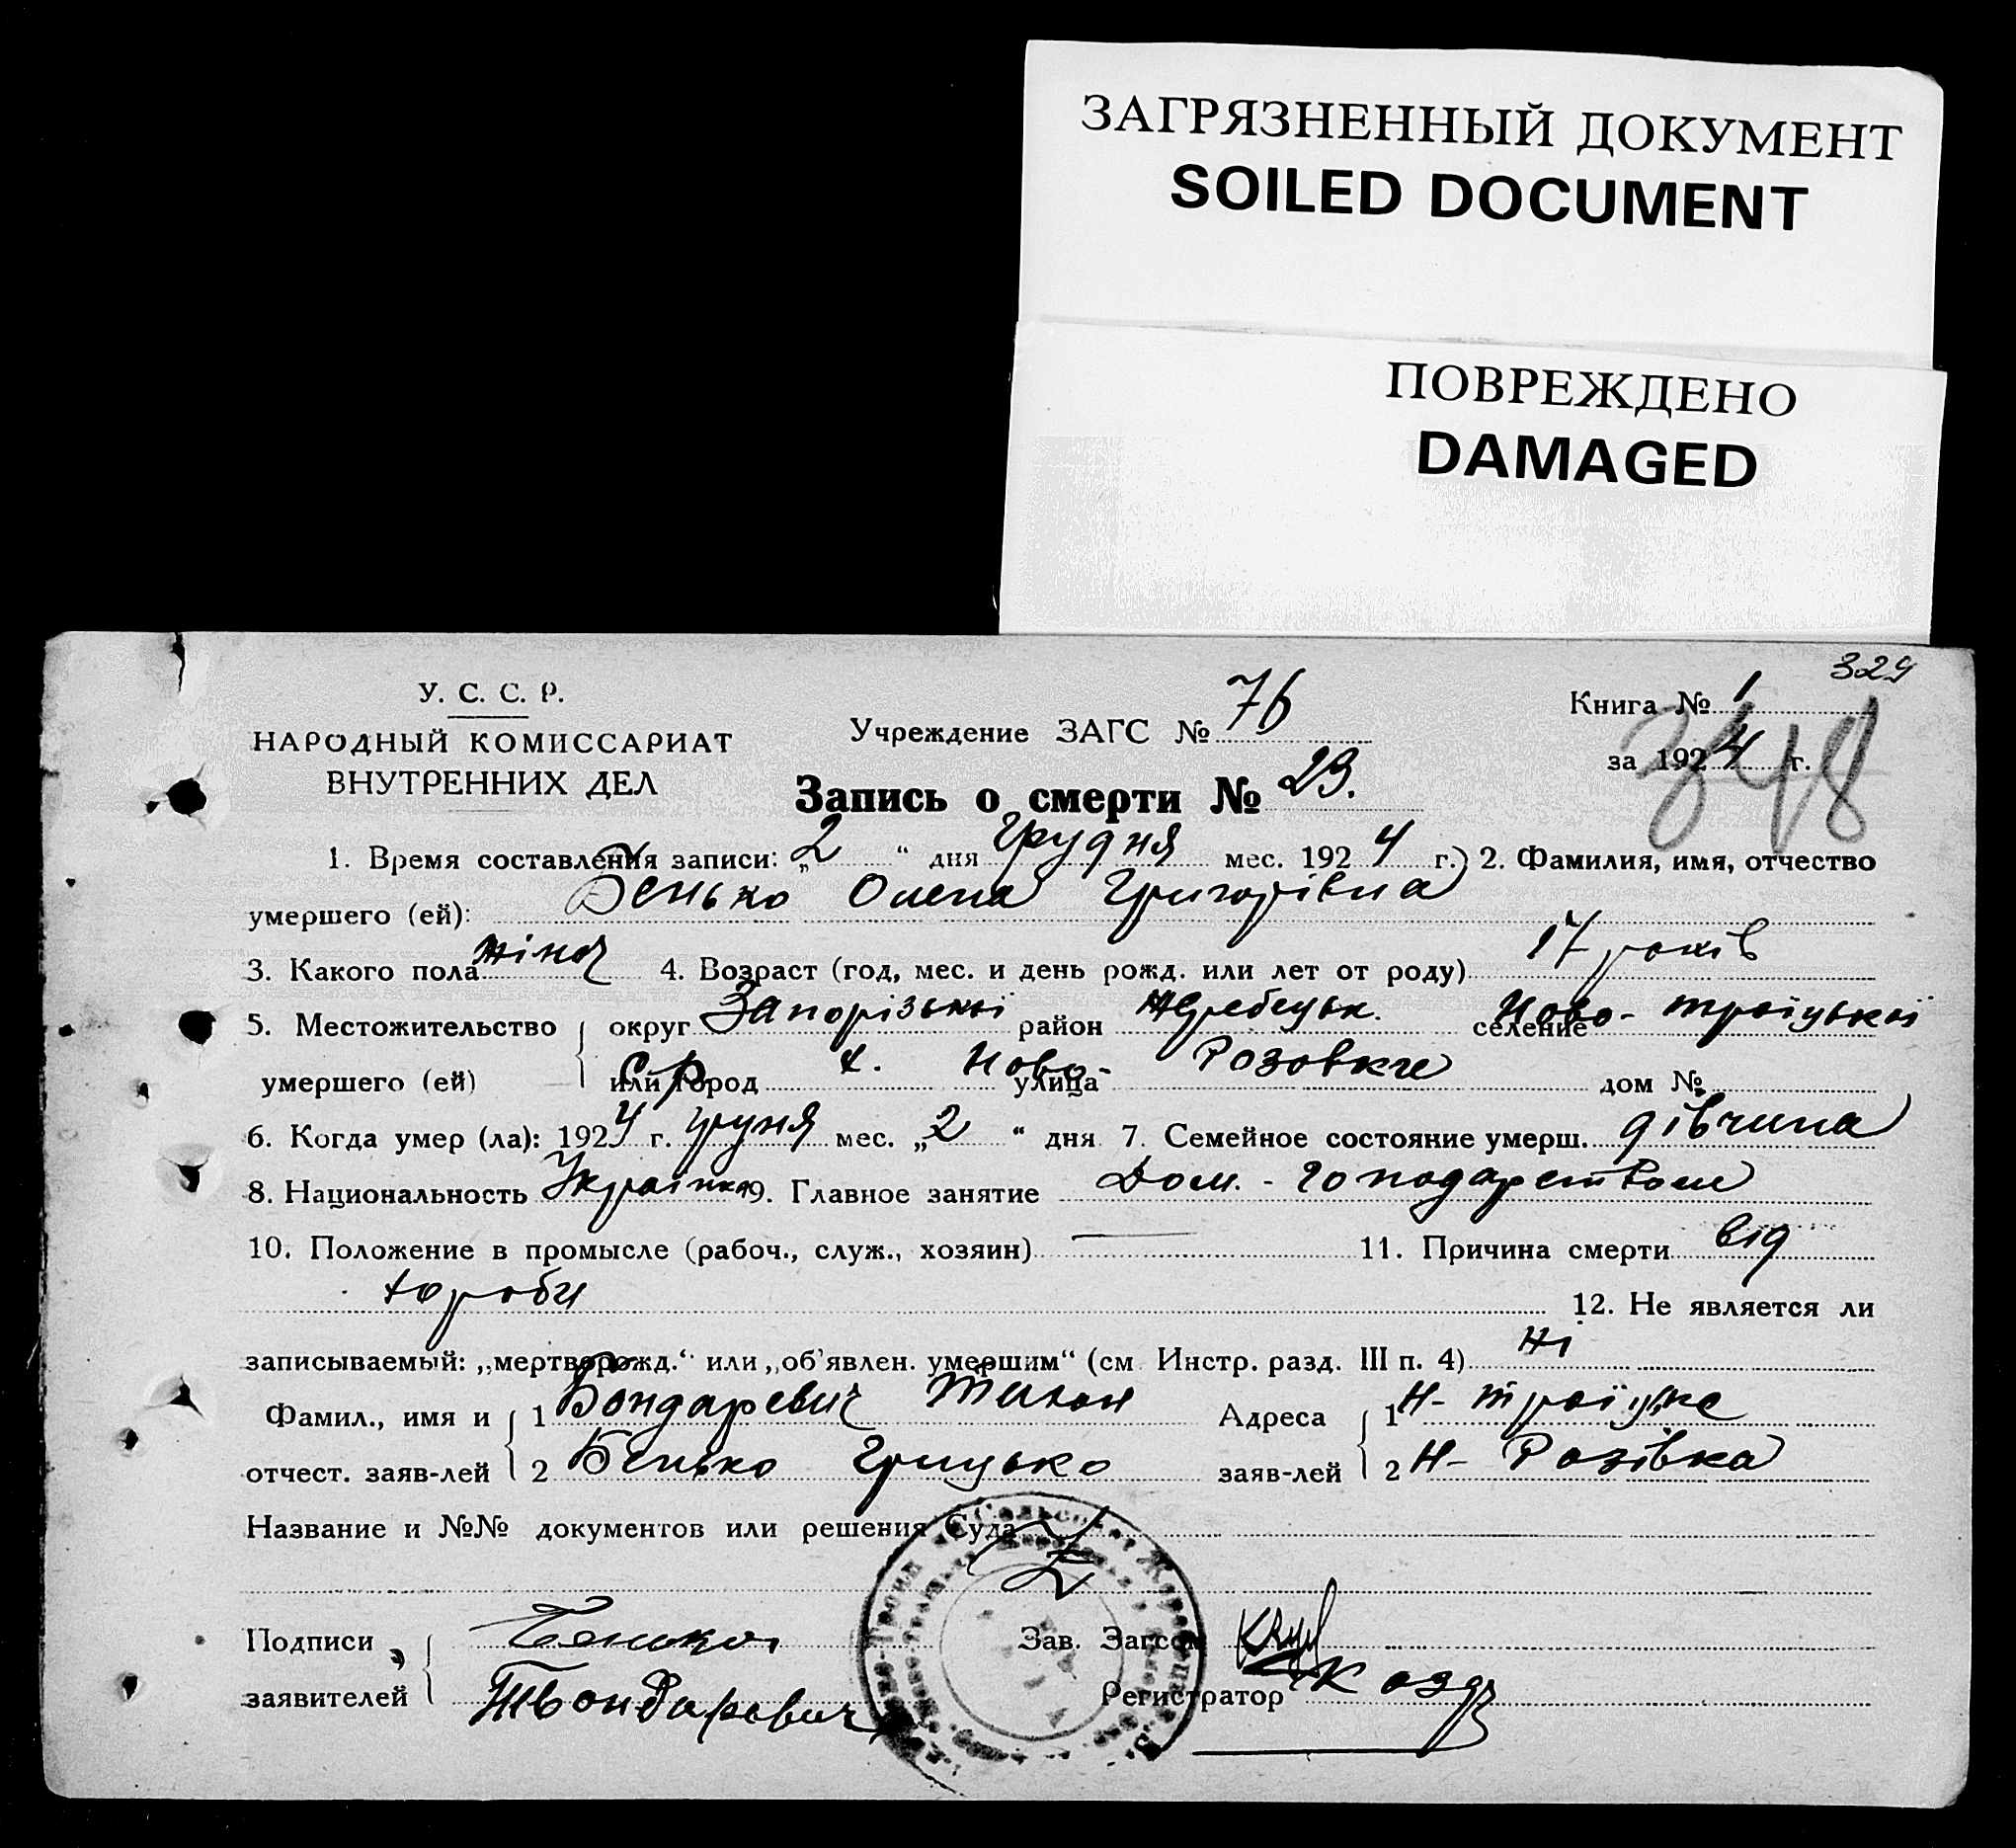 ЗАГРЯЗНЕННЫЙ ДОКУМЕНТ
SOILED DOCUMENT
ПОВРЕЖДЕНО
DAMAGED
329
348
У. С. С. Р.
НАРОДНЫЙ КОМИССАРИАТ
ВНУТРЕННИХ ДЕЛ
Учреждение ЗАГС № 76
Книга № 1
за 1924 г.
Запись о смерти № 23.
1. Время составления записи: „2“ дня Грудня мес. 1924 г. 2. Фамилия, имя, отчество
умершего (ей): Бенько Олена Григорівна
3. Какого пола жіноч 4. Возраст (год, мес. и день рожд. или лет от роду) 17 років
5. Местожительство умершего (ей) округ Запорізької район Жеребецьк. селение Ново-Троїцької
или город с/р х. улица Ново-Розовке дом №
6. Когда умер (ла): 1924 г. грудня мес. „2“ дня 7. Семейное состояние умерш. дівчина
8. Национальность Українка 9. Главное занятие Дом.-господарством
10. Положение в промысле (рабоч., служ., хозяин) — 11. Причина смерти від
хороби 12. Не является ли
записываемый: „мертворожд.“ или „об'явлен. умершим“ (см. Инстр. разд. III п. 4) Ні
Фамил., имя и отчест. заяв-лей 1 Бондаревич Адреса заяв-лей 1 Н-Троїцьке
2 Бенько Грицько 2 Н-Розівка
Название и №№ документов или решения Суда
Подписи заявителей Бенько Зав. Загсом
ТБондаревич Регистратор